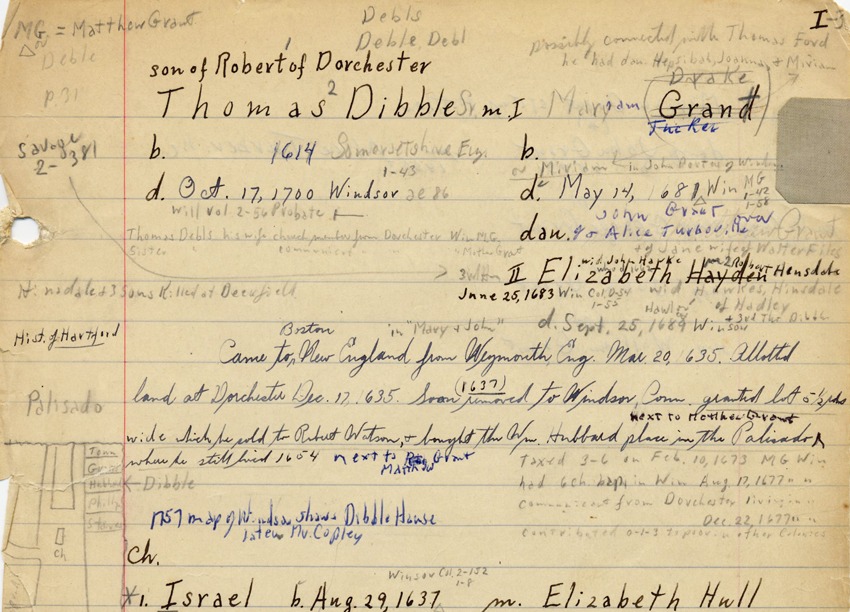 I-3
MG. = Matthew Grant
Debls
Deble, Debl
possibly connected with Thomas Ford
or
Deble
he had dau. Hepsibah, Joanna, + Miriam
p. 31
son of Robert¹ of Dorchester
Drake
Thomas² Dibble Sr. m. I Mary Grant
Tucker
Savage
2-381
b. 1614 Somersetshire Eng. b.
1-43
or Miriam in John Porter of Windsor
d. Oct. 17, 1700 Windsor ae 86 d. May 14, 1681 Win MG
1-42
1-58
will vol 2-56 Probate
John Grant
dau. of + Alice Turbov
Thomas Debls his wife church member from Dorchester Win M.G.
Sister communicant Matthew Grant
+ of Jane wife of Walter Files
wid. John Hawke
II Elizabeth Hayden Hensdale
3rd
June 25, 1683 Win Col. D-54
1-55
wid H. Hawkes, Hinsdale
of Hadley
+ 3rd Tho Dibble
Hinsdale & 3 sons Killed at Deerfield
d. Sept. 25, 1689 Windsor
Hist. of Hartford
Boston in "Mary & John"
Came to New England from Weymouth, Eng. Mar. 20, 1635. Allotted
(1637)
land at Dorchester Dec. 17, 1635. Soon removed to Windsor, Conn. granted lot 5-½ rods
Palisado
next to Matthew Grant
wide which he sold to Robert Watson, + bought the Wm. Hubbard place in the Palisado
where he still lived 1654 next to Grant
Matthew
taxed 3-6 on Feb. 10, 1673 MG Win
← Dibble
had 6 ch. bap. in Win Aug. 17, 1677 " "
communicant from Dorchester living in " "
Dec. 22, 1677 " "
contributed 0-1-3 to poor in other Colonies
Ch
1757 map of Windsor shows Dibble House
later Mr. Copley
Ch.
Winsor Col. 2-152
1-8
*1. Israel b. Aug. 29, 1637 m. Elizabeth Hull